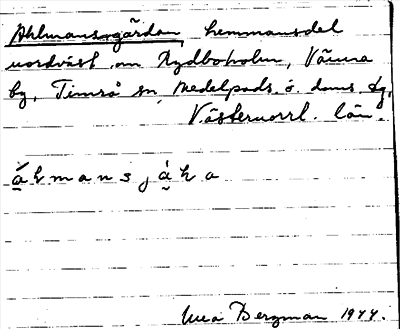 Ahlmansgården, hemmansdel
nordväst om Nydboholm, Vänna
by, Timrå sn, Medelpads ö. doms. tg,
Västernorrl. län.
Bergman 1944.